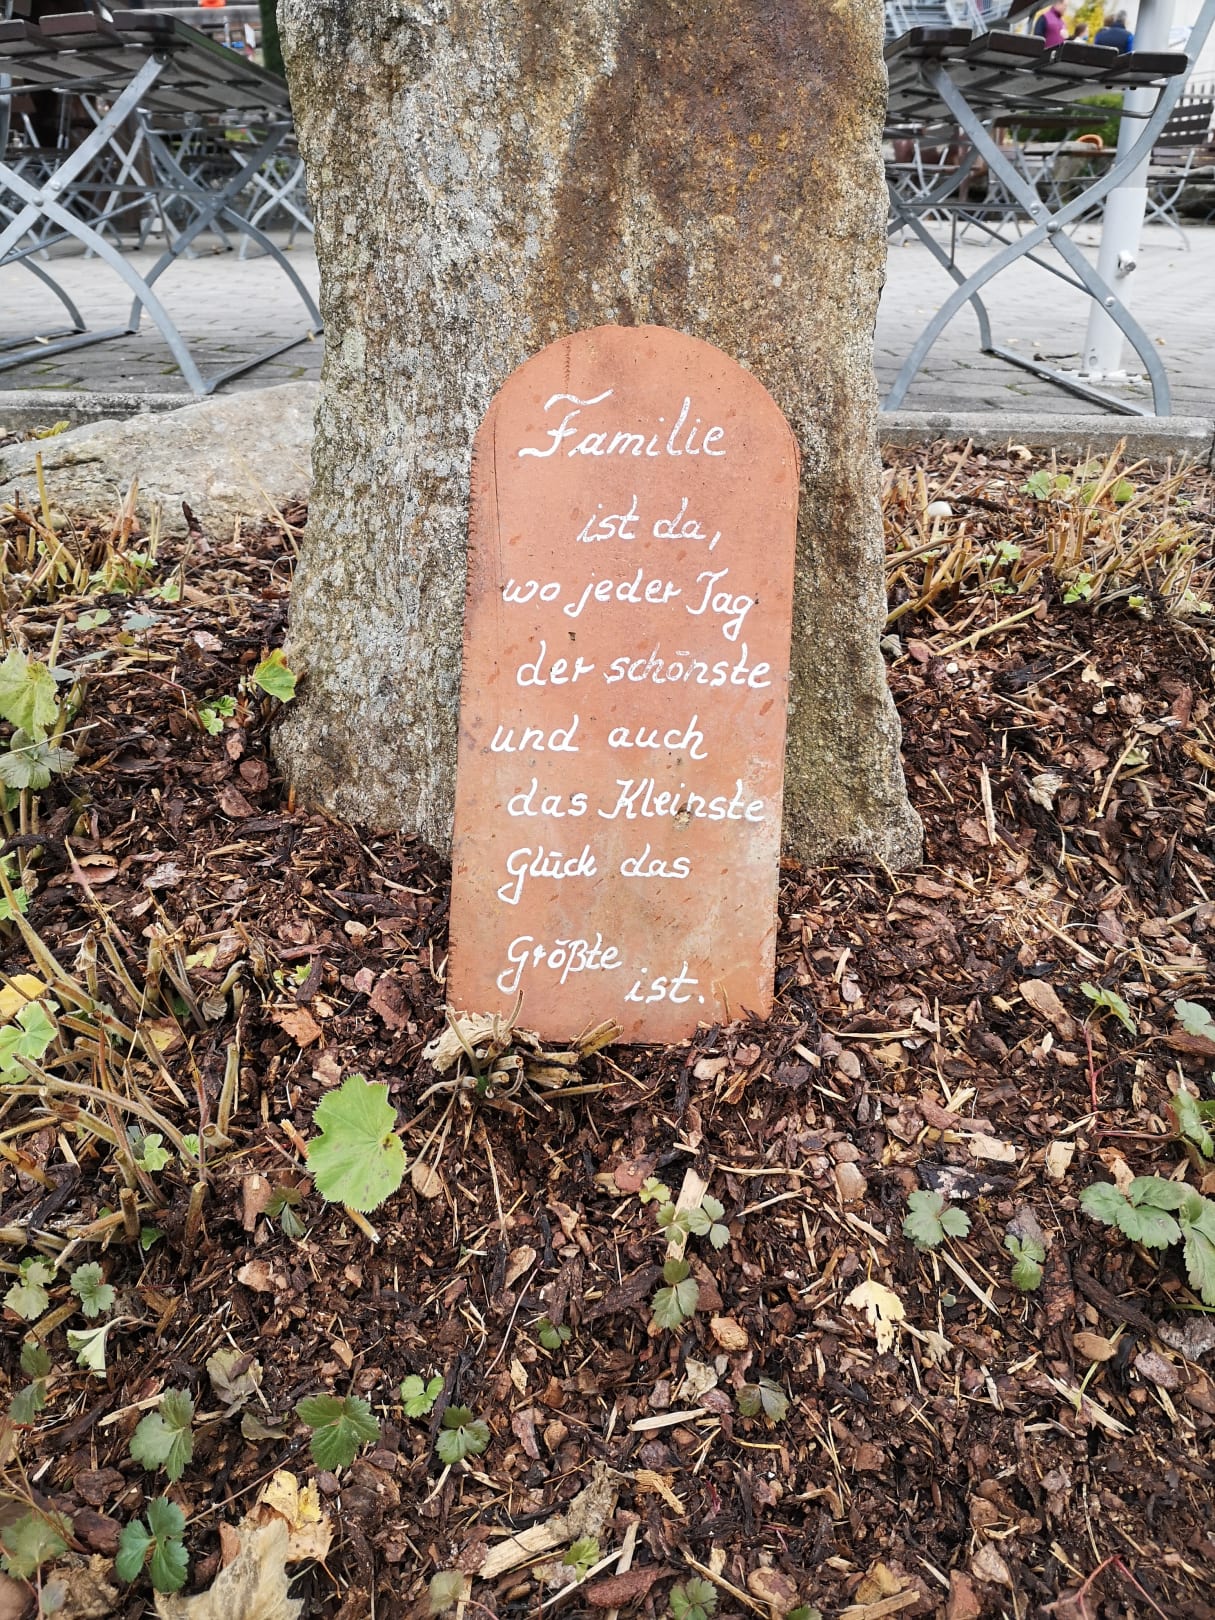 Familie
ist da,
wo jeder Tag
der schönste
und auch
das Kleinste
Glück das
Größte
ist.